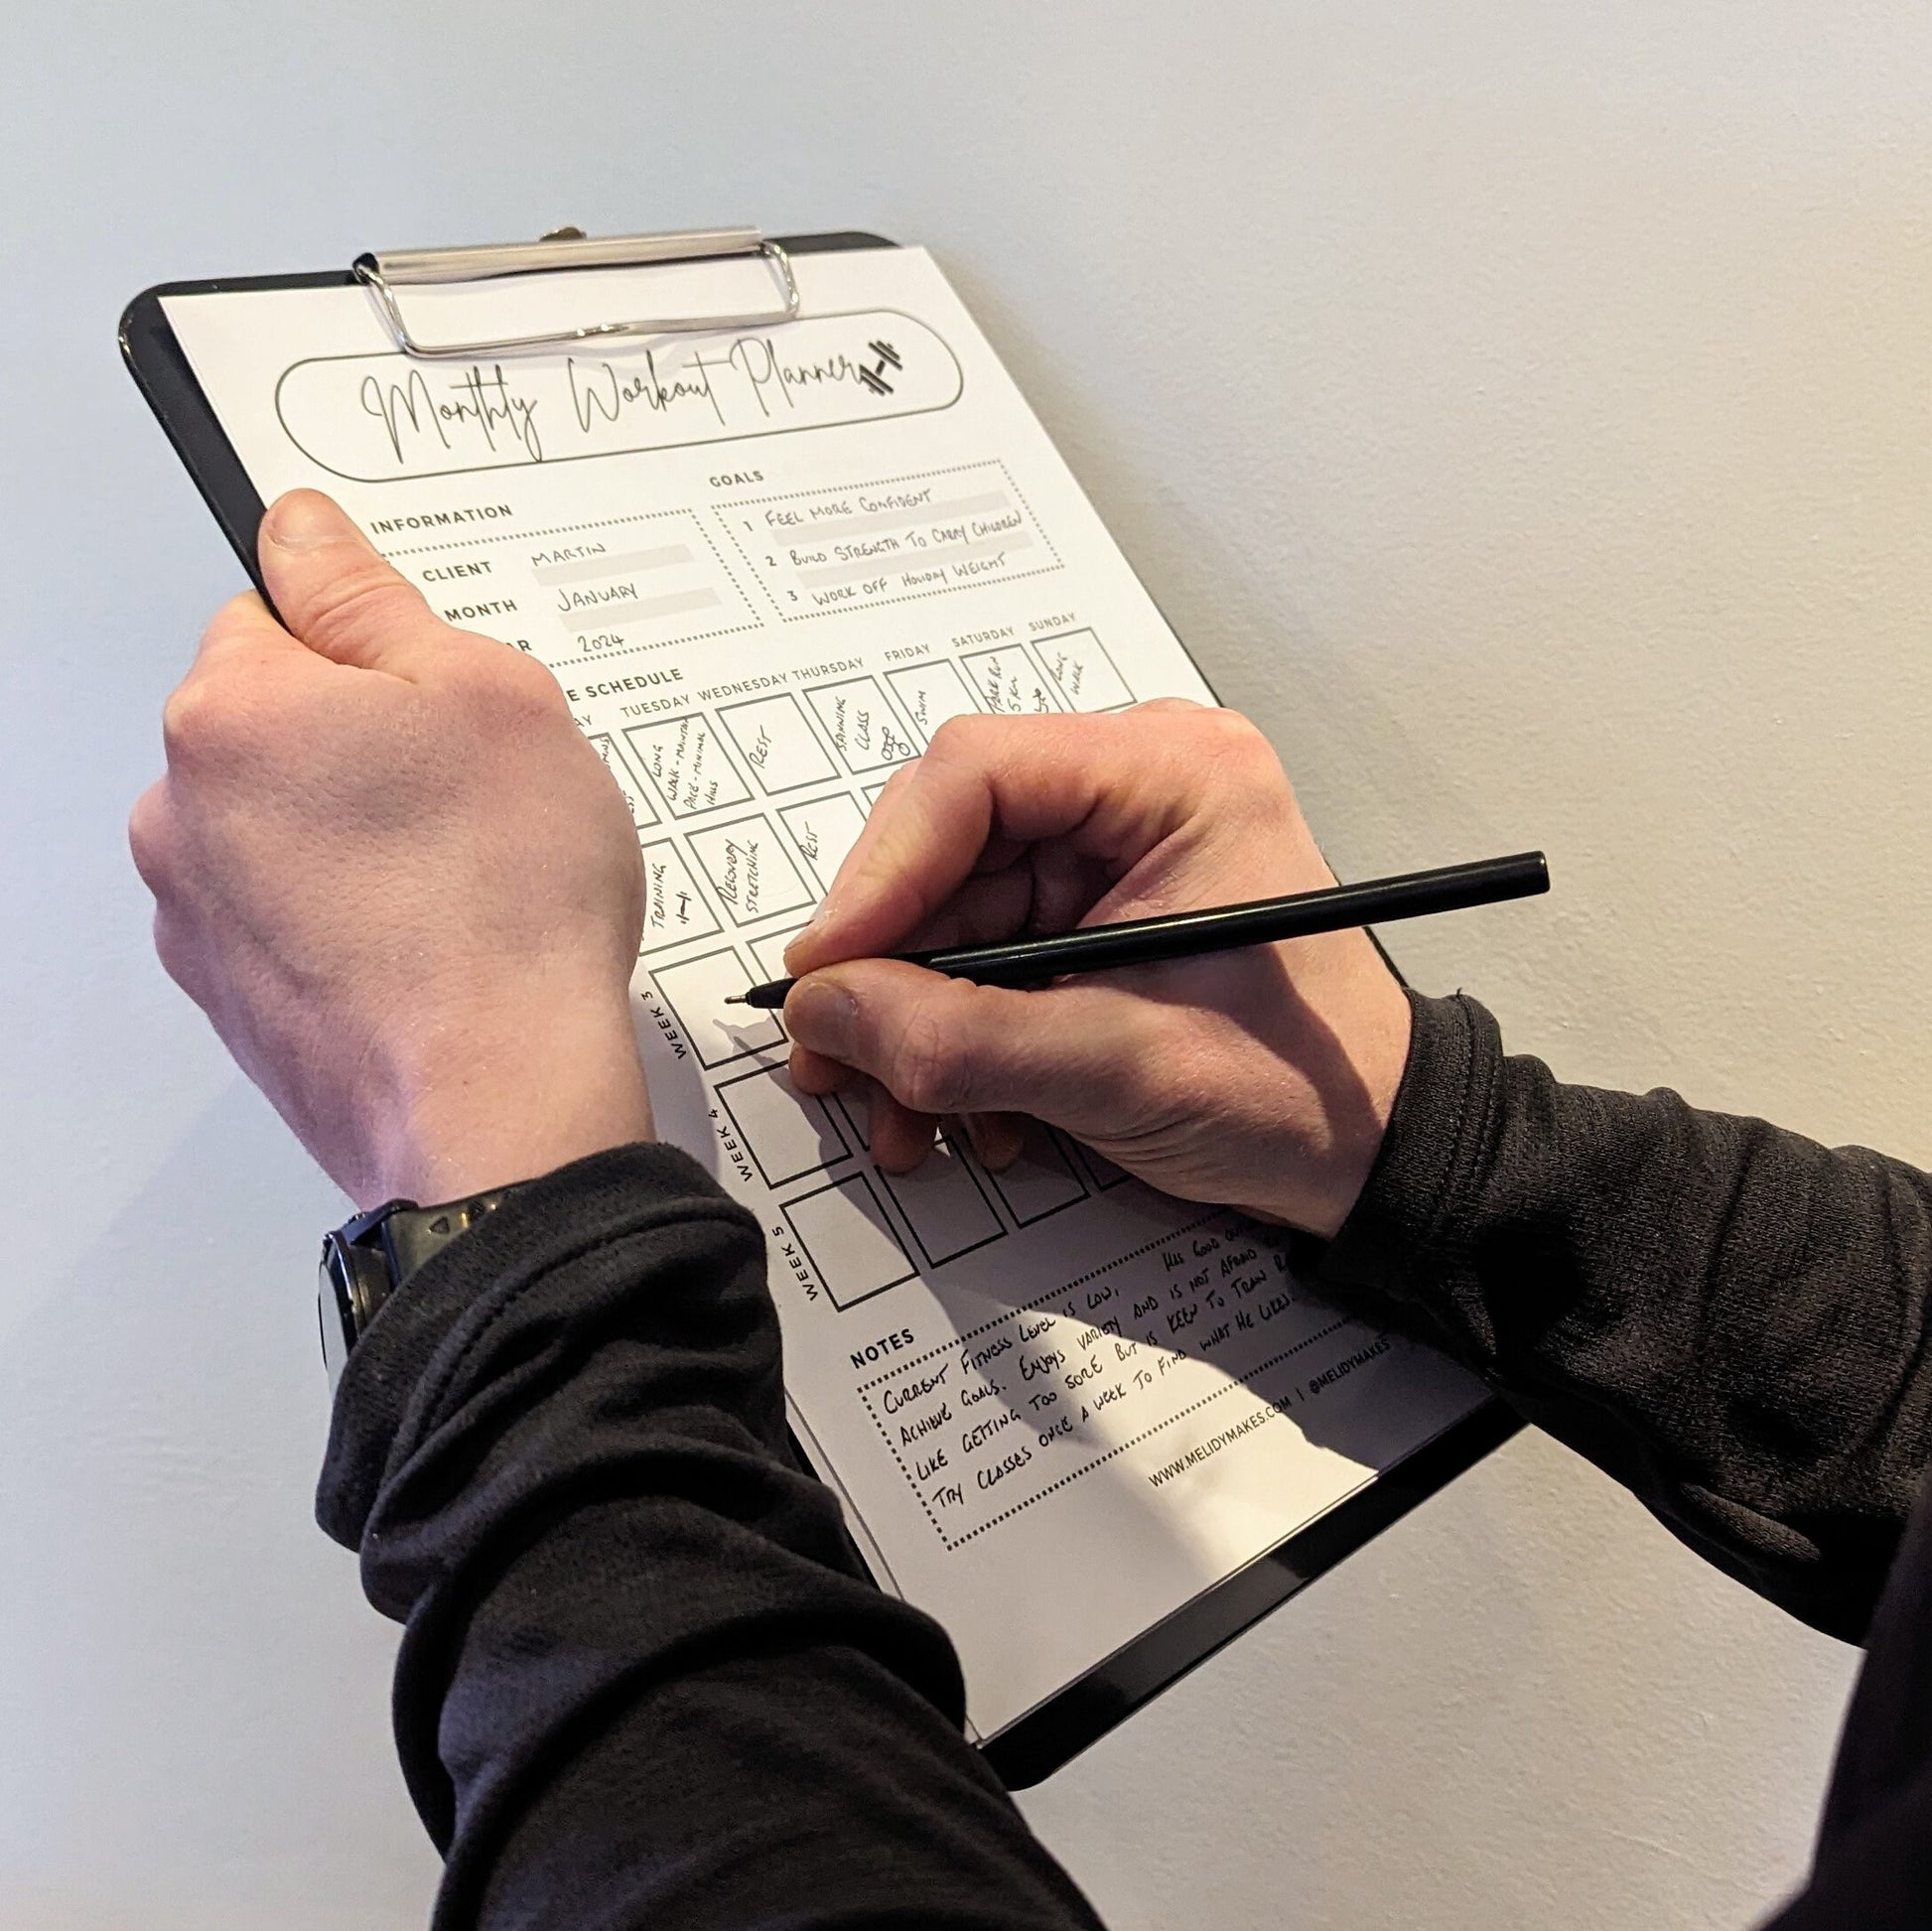 Monthly Workout Planner
INFORMATION
CLIENT MARTIN
MONTH JANUARY
AR 2024
GOALS
1 FEEL MORE CONFIDENT
2 BUILD STRENGTH TO CARRY CHILDREN
3 WORK OFF HOLIDAY WEIGHT
E SCHEDULE
AY TUESDAY WEDNESDAY THURSDAY FRIDAY SATURDAY SUNDAY
LONG
WALK - MAINTAIN
PACE - MINIMAL
HILLS
REST
SPINNING
CLASS
SWIM
PARK RUN
5 KM
LONG
WALK
TRAINING
RECOVERY
STRETCHING
REST
WEEK 3
WEEK 4
WEEK 5
NOTES
CURRENT FITNESS LEVEL IS LOW, HAS GOOD
ACHIEVE GOALS. ENJOYS VARIETY AND IS NOT AFRAID
LIKE GETTING TOO SORE BUT IS KEEN TO TRAIN
TRY CLASSES ONCE A WEEK TO FIND WHAT HE LIKES.
WWW.MELIDYMAKES.COM | @MELIDYMAKES